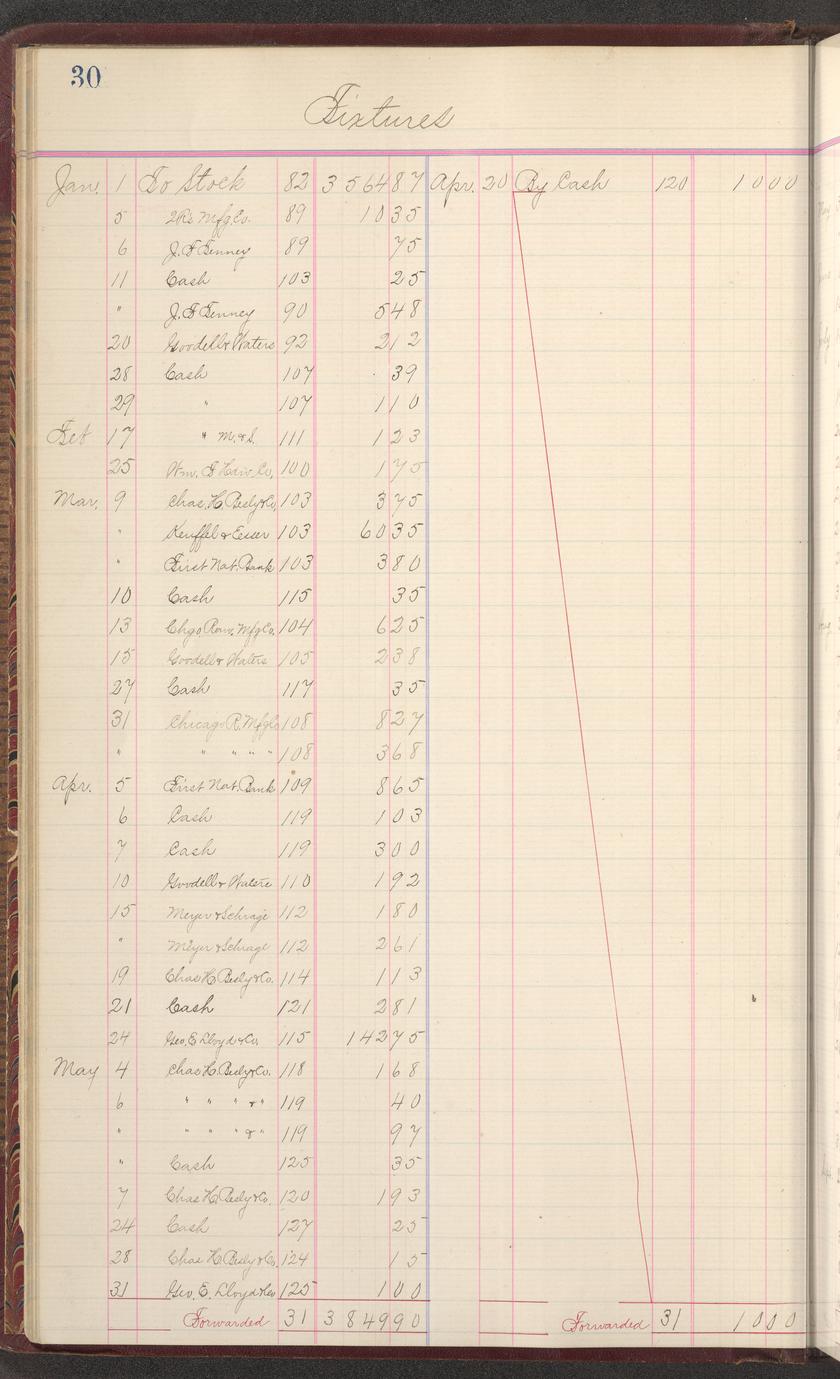 30
Fixtures
Jan. 1 To Stock 82 3 564 87 Apr. 20 By Cash 120 10 00
5 Mfg. Co. 89 10 35
6 89 75
11 Cash 103 25
" 90 5 48
20 Goodell & Waters 92 2 12
28 Cash 107 39
29 " 107 1 10
Feb 17 " M. & S. 111 1 23
25 Wm. Co. 100 1 75
Mar. 9 Chas. H. Besly & Co. 103 3 75
" Keuffel & Esser 103 60 35
" First Nat. Bank 103 3 80
10 Cash 115 35
13 Chgo. Raw. Mfg Co. 104 6 25
15 Goodell & Waters 105 2 38
27 Cash 117 35
31 Chicago R. Mfg Co 108 8 27
" " " " " 108 3 68
Apr. 5 First Nat. Bank 109 8 65
6 Cash 119 1 03
7 Cash 119 3 00
10 Goodell & Waters 110 1 92
15 Meyer & Schrage 112 1 80
" Meyer & Schrage 112 2 61
19 Chas H. Besly & Co. 114 1 13
21 Cash 121 2 81
24 Geo. E. Lloyd & Co. 115 142 75
May 4 Chas H. Besly & Co. 118 1 68
6 " " " & " 119 40
" " " " & " 119 97
" Cash 125 35
7 Chas H. Besly & Co. 120 1 93
24 Cash 127 25
28 Chas H. Besly & Co. 124 15
31 Geo. E. Lloyd & Co 125 1 00
Forwarded 31 3 849 90 Forwarded 31 10 00